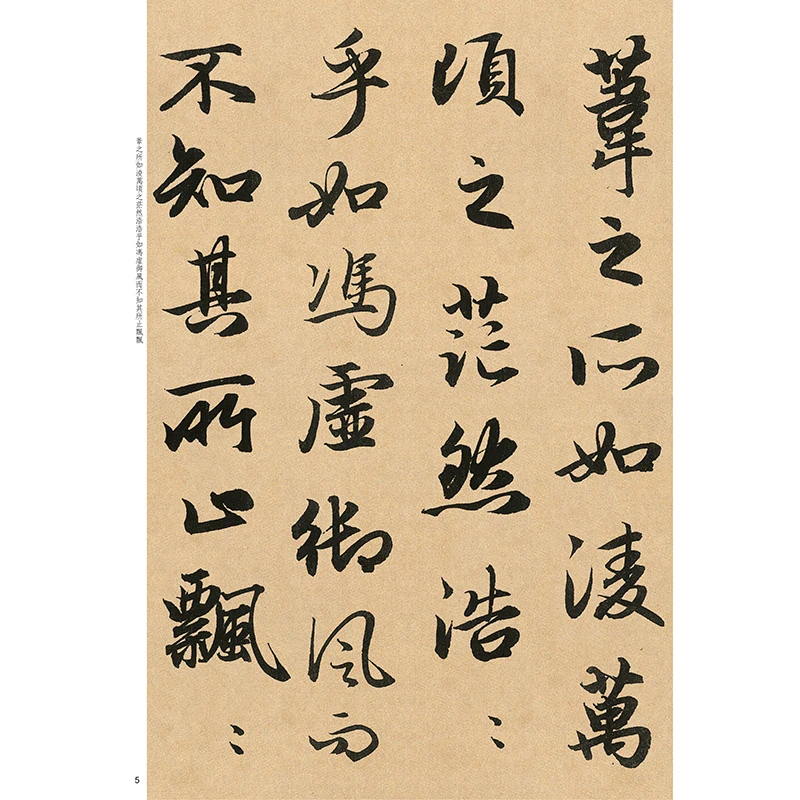 葦之所如淩萬
頃之茫然浩〻
乎如馮虛御風而
不知其所止飄〻
葦之所如淩萬頃之茫然浩浩乎如馮虛御風而不知其所止飄飄
5